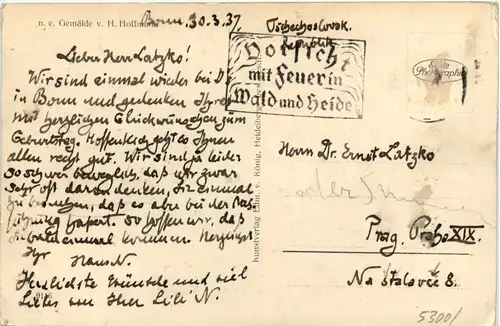 n. e. Gemälde v. H. Hoffmann
Bonn, 30.3.37
Lieber Herr Latzko!
Wir sind einmal wieder bei
in Bonn und gedenken Ihrer
mit herzlichen Glückwünschen zum
Geburtstag. Hoffentlich geht es Ihnen
allen recht gut. Wir sind ja leider
so schwer beweglich, daß wir zwar
sehr oft daran denken, Sie einmal
zu besuchen, daß es aber bei der Aus-
führung hapert. So hoffen wir, daß
Sie bald einmal kommen. Herzlichst
Ihr Hans N.
Herzlichste Wünsche und viel
Liebes von Ihrer Lili N.
Kunstverlag Edm. v. König, Heidelberg
Tschechoslovak.
Republik
Vorsicht
mit Feuer in
Wald und Heide
Echte
Photographie
Herrn Dr. Ernst Latzko
Prag, Praha XIX.
Na Stalovce 8.
5300/